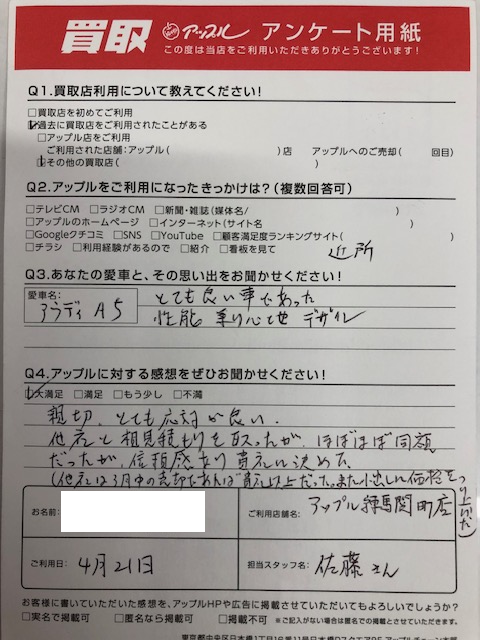 買取 アップル アンケート用紙
この度は当店をご利用いただきありがとうございます!
Q1.買取店利用について教えてください!
□買取店を初めてご利用
☑過去に買取店をご利用されたことがある
□アップル店をご利用
ご利用された店舗:アップル( )店 アップルへのご売却( 回目)
☑その他の買取店( )
Q2.アップルをご利用になったきっかけは?(複数回答可)
□テレビCM □ラジオCM □新聞・雑誌(媒体名/ )
□アップルのホームページ □インターネット(サイト名 )
□Googleクチコミ □SNS □YouTube □顧客満足度ランキングサイト( )
□チラシ □利用経験があるので □紹介 □看板を見て 近所
Q3.あなたの愛車と、その思い出をお聞かせください!
愛車名:
アウディ A5
とても良い車であった
性能 乗り心地 デザイン
Q4.アップルに対する感想をぜひお聞かせください!
☑大満足 □満足 □もう少し □不満
親切、とても応対が良い、
他社と相見積もりを取ったが、ほぼほぼ同額
だったが、信頼感あり貴社に決めた
(他社は3月中の売却であれば貴社以上だった。また小出しに価格をつり上げた)
お名前:
ご利用店舗名: アップル練馬関町店
ご利用日: 4月21日
担当スタッフ名: 佐藤さん
お客様に書いていただいた感想を、アップルHPや広告に掲載させていただいてもよろしいでしょうか?
□実名で掲載可 □匿名なら掲載可 □掲載不可 ※ご記入がない場合は匿名での掲載とさせていただきます。